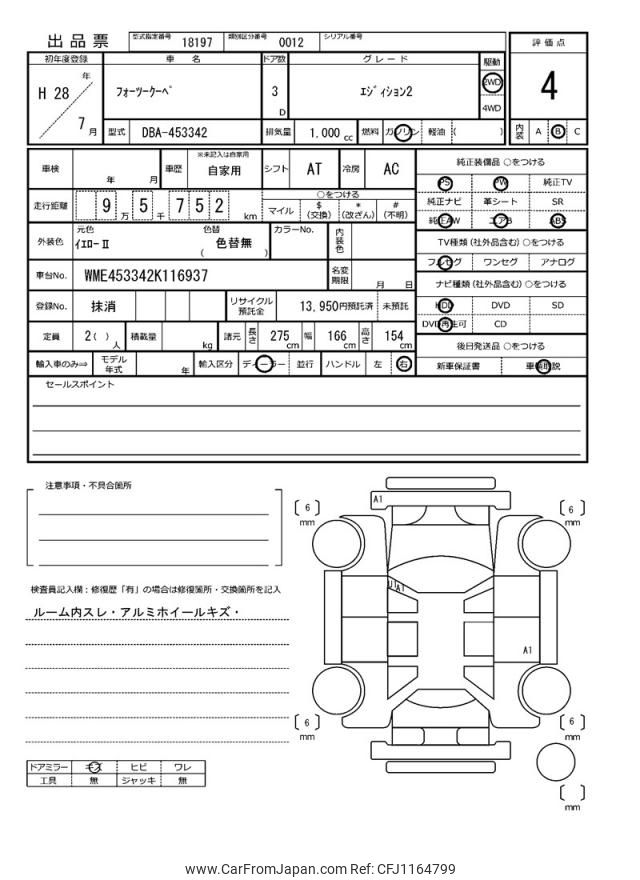 出品票 型式指定番号 18197 類別区分番号 0012 シリアル番号
評価点
4
内装 A B C
初年度登録 車名 ドア数 グレード 駆動
H 28 年 7 月
フォーツークーペ 3 D エディション2 2WD 4WD
型式 DBA-453342 排気量 1,000 cc 燃料 ガソリン 軽油 ( )
車検 年 月 車歴 ※未記入は自家用 自家用 シフト AT 冷房 AC
走行距離 9 万 5 千 7 5 2 km
○をつける
マイル $(交換) *(改ざん) #(不明)
外装色 元色 イエロ-Ⅱ 色替 ( 色替無 ) カラーNo. 内装色
車台No. WME453342K116937 名変期限 月 日
登録No. 抹消 リサイクル預託金 13,950円預託済 未預託
定員 2( ) 人 積載量 kg 諸元 長さ 275 cm 幅 166 cm 高さ 154 cm
輸入車のみ⇒ モデル年式 年 輸入区分 ディーラー 並行 ハンドル 左 右
純正装備品 ○をつける
PS PW 純正TV
純正ナビ 革シート SR
純正AW エアB ABS
TV種類 (社外品含む) ○をつける
フルセグ ワンセグ アナログ
ナビ種類 (社外品含む) ○をつける
HDD DVD SD
DVD再生可 CD
後日発送品 ○をつける
新車保証書 車輌取説
セールスポイント
注意事項・不具合箇所
検査員記入欄：修復歴「有」の場合は修復箇所・交換箇所を記入
ルーム内スレ・アルミホイールキズ・
ドアミラー キズ ヒビ ワレ
工具 無 ジャッキ 無
A1
6 mm
6 mm
A1
A1
6 mm
6 mm
mm
www.CarFromJapan.com Ref: CFJ1164799